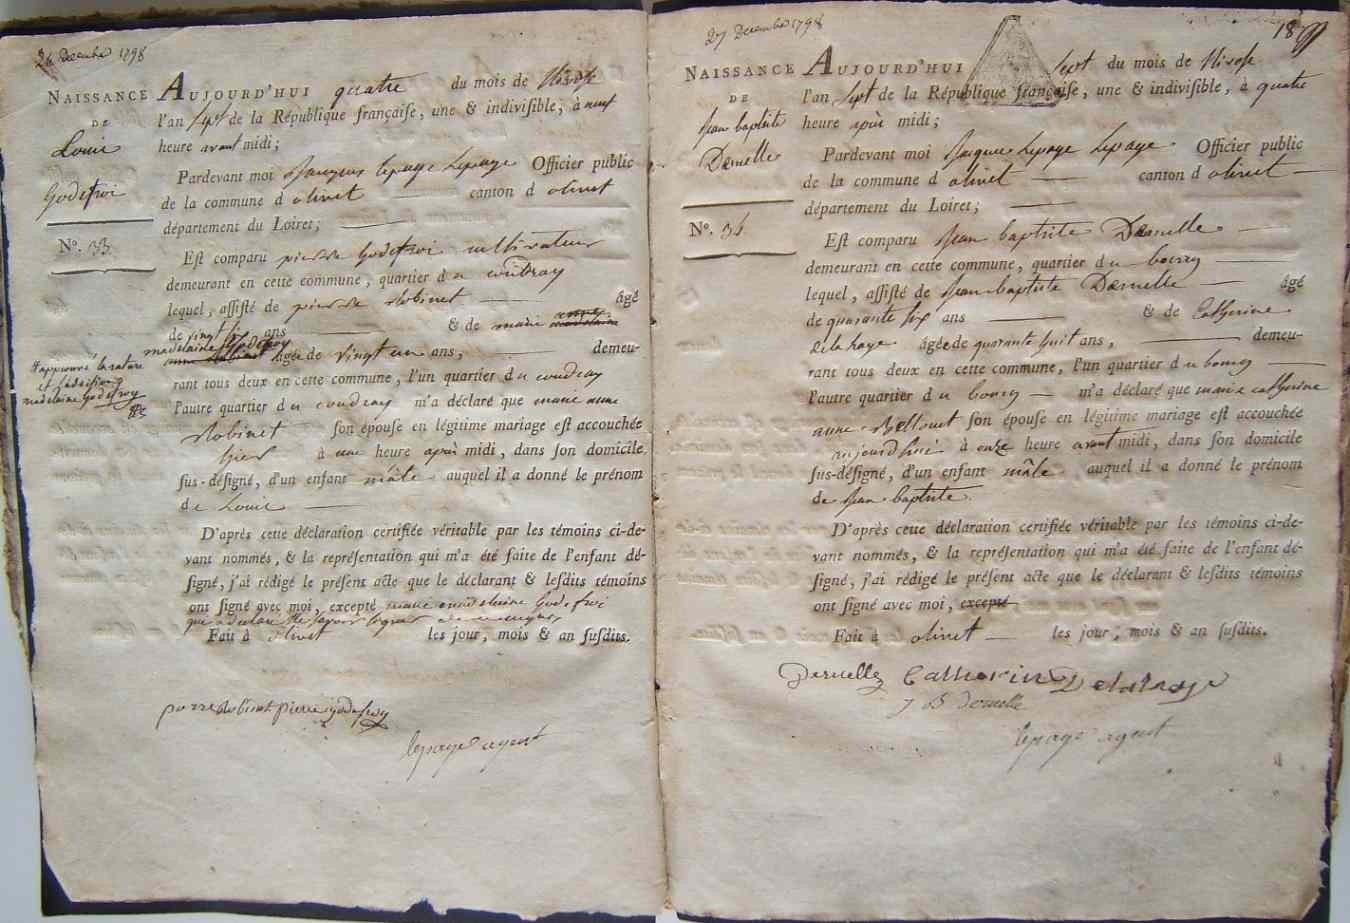 24 Decembre 1798
NAISSANCE
DE
Louis
Godefroi
N°. 33.
AUJOURD'HUI quatre du mois de Nivose
l'an sept de la République française, une & indivisible, à neuf
heure avant midi;
Pardevant moi Jacques Lepage Lepage Officier public
de la commune d olivet canton d olivet
département du Loiret;
Est comparu pierre Godefroi cultivateur
demeurant en cette commune, quartier du coudray
lequel, assisté de pierre Robinet âgé
de vingt six ans & de marie
madelaine Godefroy âgée de vingt un ans, demeu-
rant tous deux en cette commune, l'un quartier du coudray
l'autre quartier du coudray m'a déclaré que marie anne
Robinet son épouse en légitime mariage est accouchée
hier à une heure après midi, dans son domicile
sus-désigné, d'un enfant mâle auquel il a donné le prénom
de Louis
D'après cette déclaration certifiée véritable par les témoins ci-de-
vant nommés, & la représentation qui m'a été faite de l'enfant dé-
signé, j'ai rédigé le présent acte que le déclarant & lesdits témoins
ont signé avec moi, excepté marie madelaine Godefroi
que a déclaré ne savoir signer
Fait à olivet les jour, mois & an susdits.
approuvé la rature
madelaine Godefroy
pierre Robinet pierre godefroy
lepage agent
27 Decembre 1798
18
NAISSANCE
DE
Jean baptiste
Dernelle
N°. 34
AUJOURD'HUI sept du mois de Nivose
l'an sept de la République française, une & indivisible, à quatre
heure après midi;
Pardevant moi Jacques Lepage Lepage Officier public
de la commune d olivet canton d olivet
département du Loiret;
Est comparu Jean baptiste Dernelle
demeurant en cette commune, quartier du bourg
lequel, assisté de Jean baptiste Dernelle âgé
de quarante six ans & de Catherine
Delahaye âgée de quarante huit ans, demeu-
rant tous deux en cette commune, l'un quartier du bourg
l'autre quartier du bourg m'a déclaré que marie catherine
anne son épouse en légitime mariage est accouchée
aujourd'hui à onze heure avant midi, dans son domicile
sus-désigné, d'un enfant mâle auquel il a donné le prénom
de Jean baptiste
D'après cette déclaration certifiée véritable par les témoins ci-de-
vant nommés, & la représentation qui m'a été faite de l'enfant dé-
signé, j'ai rédigé le présent acte que le déclarant & lesdits témoins
ont signé avec moi, excepté
Fait à olivet les jour, mois & an susdits.
Dernelle Catherine Delahaye
J B Dernelle
lepage agent